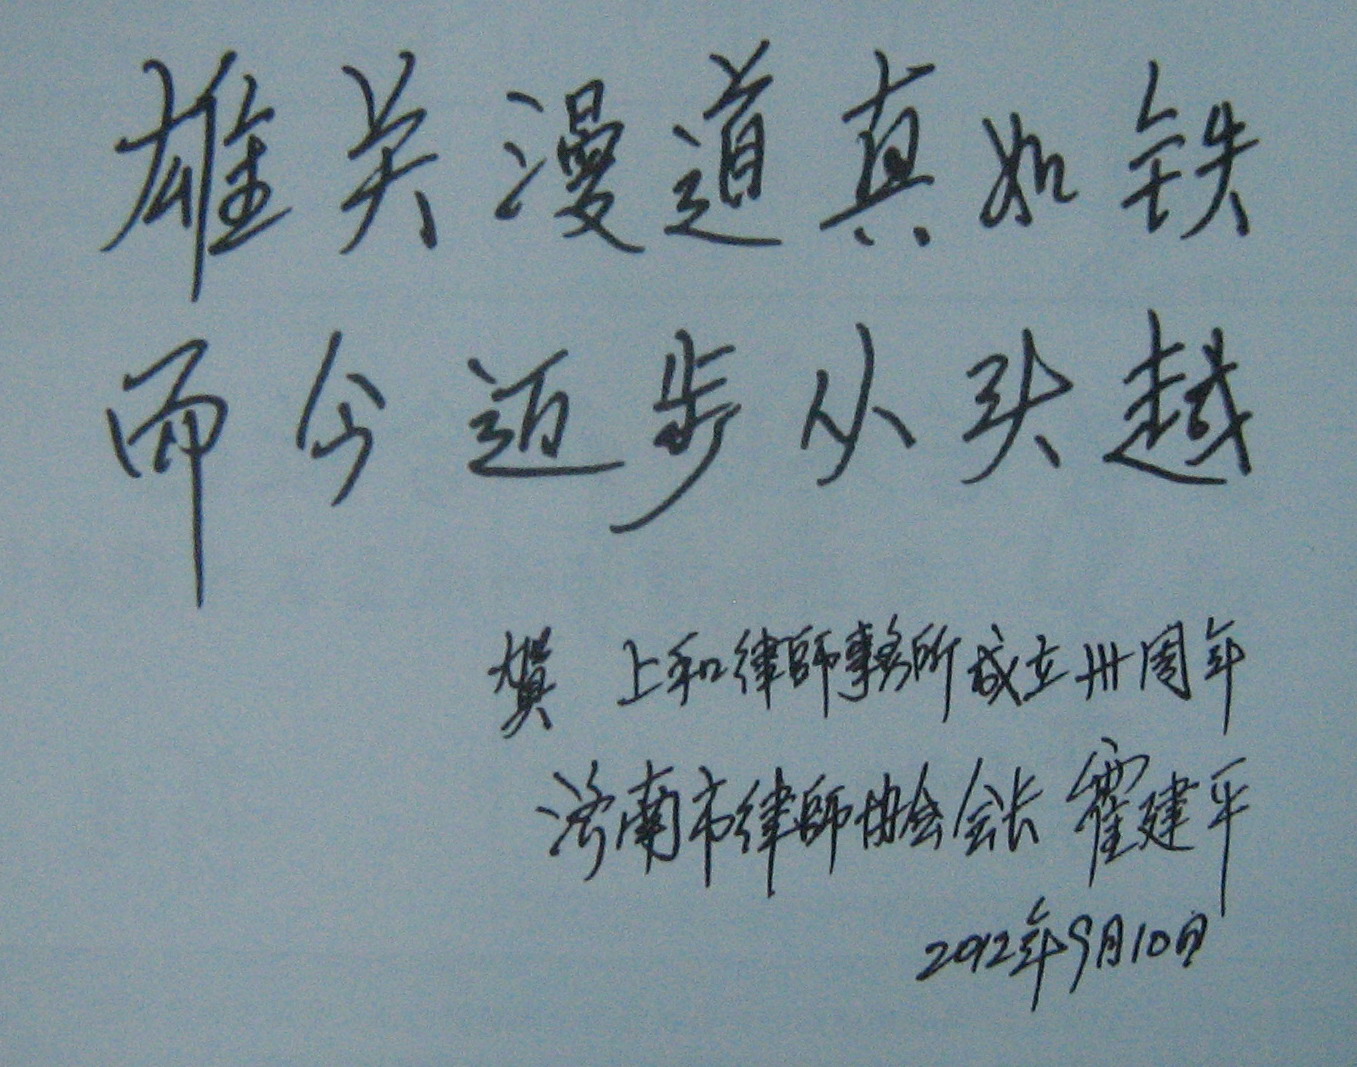 雄关漫道真如铁
而今迈步从头越
贺 上和律師事務所成立卅周年
济南市律師协会会长 霍建平
2012年9月10日